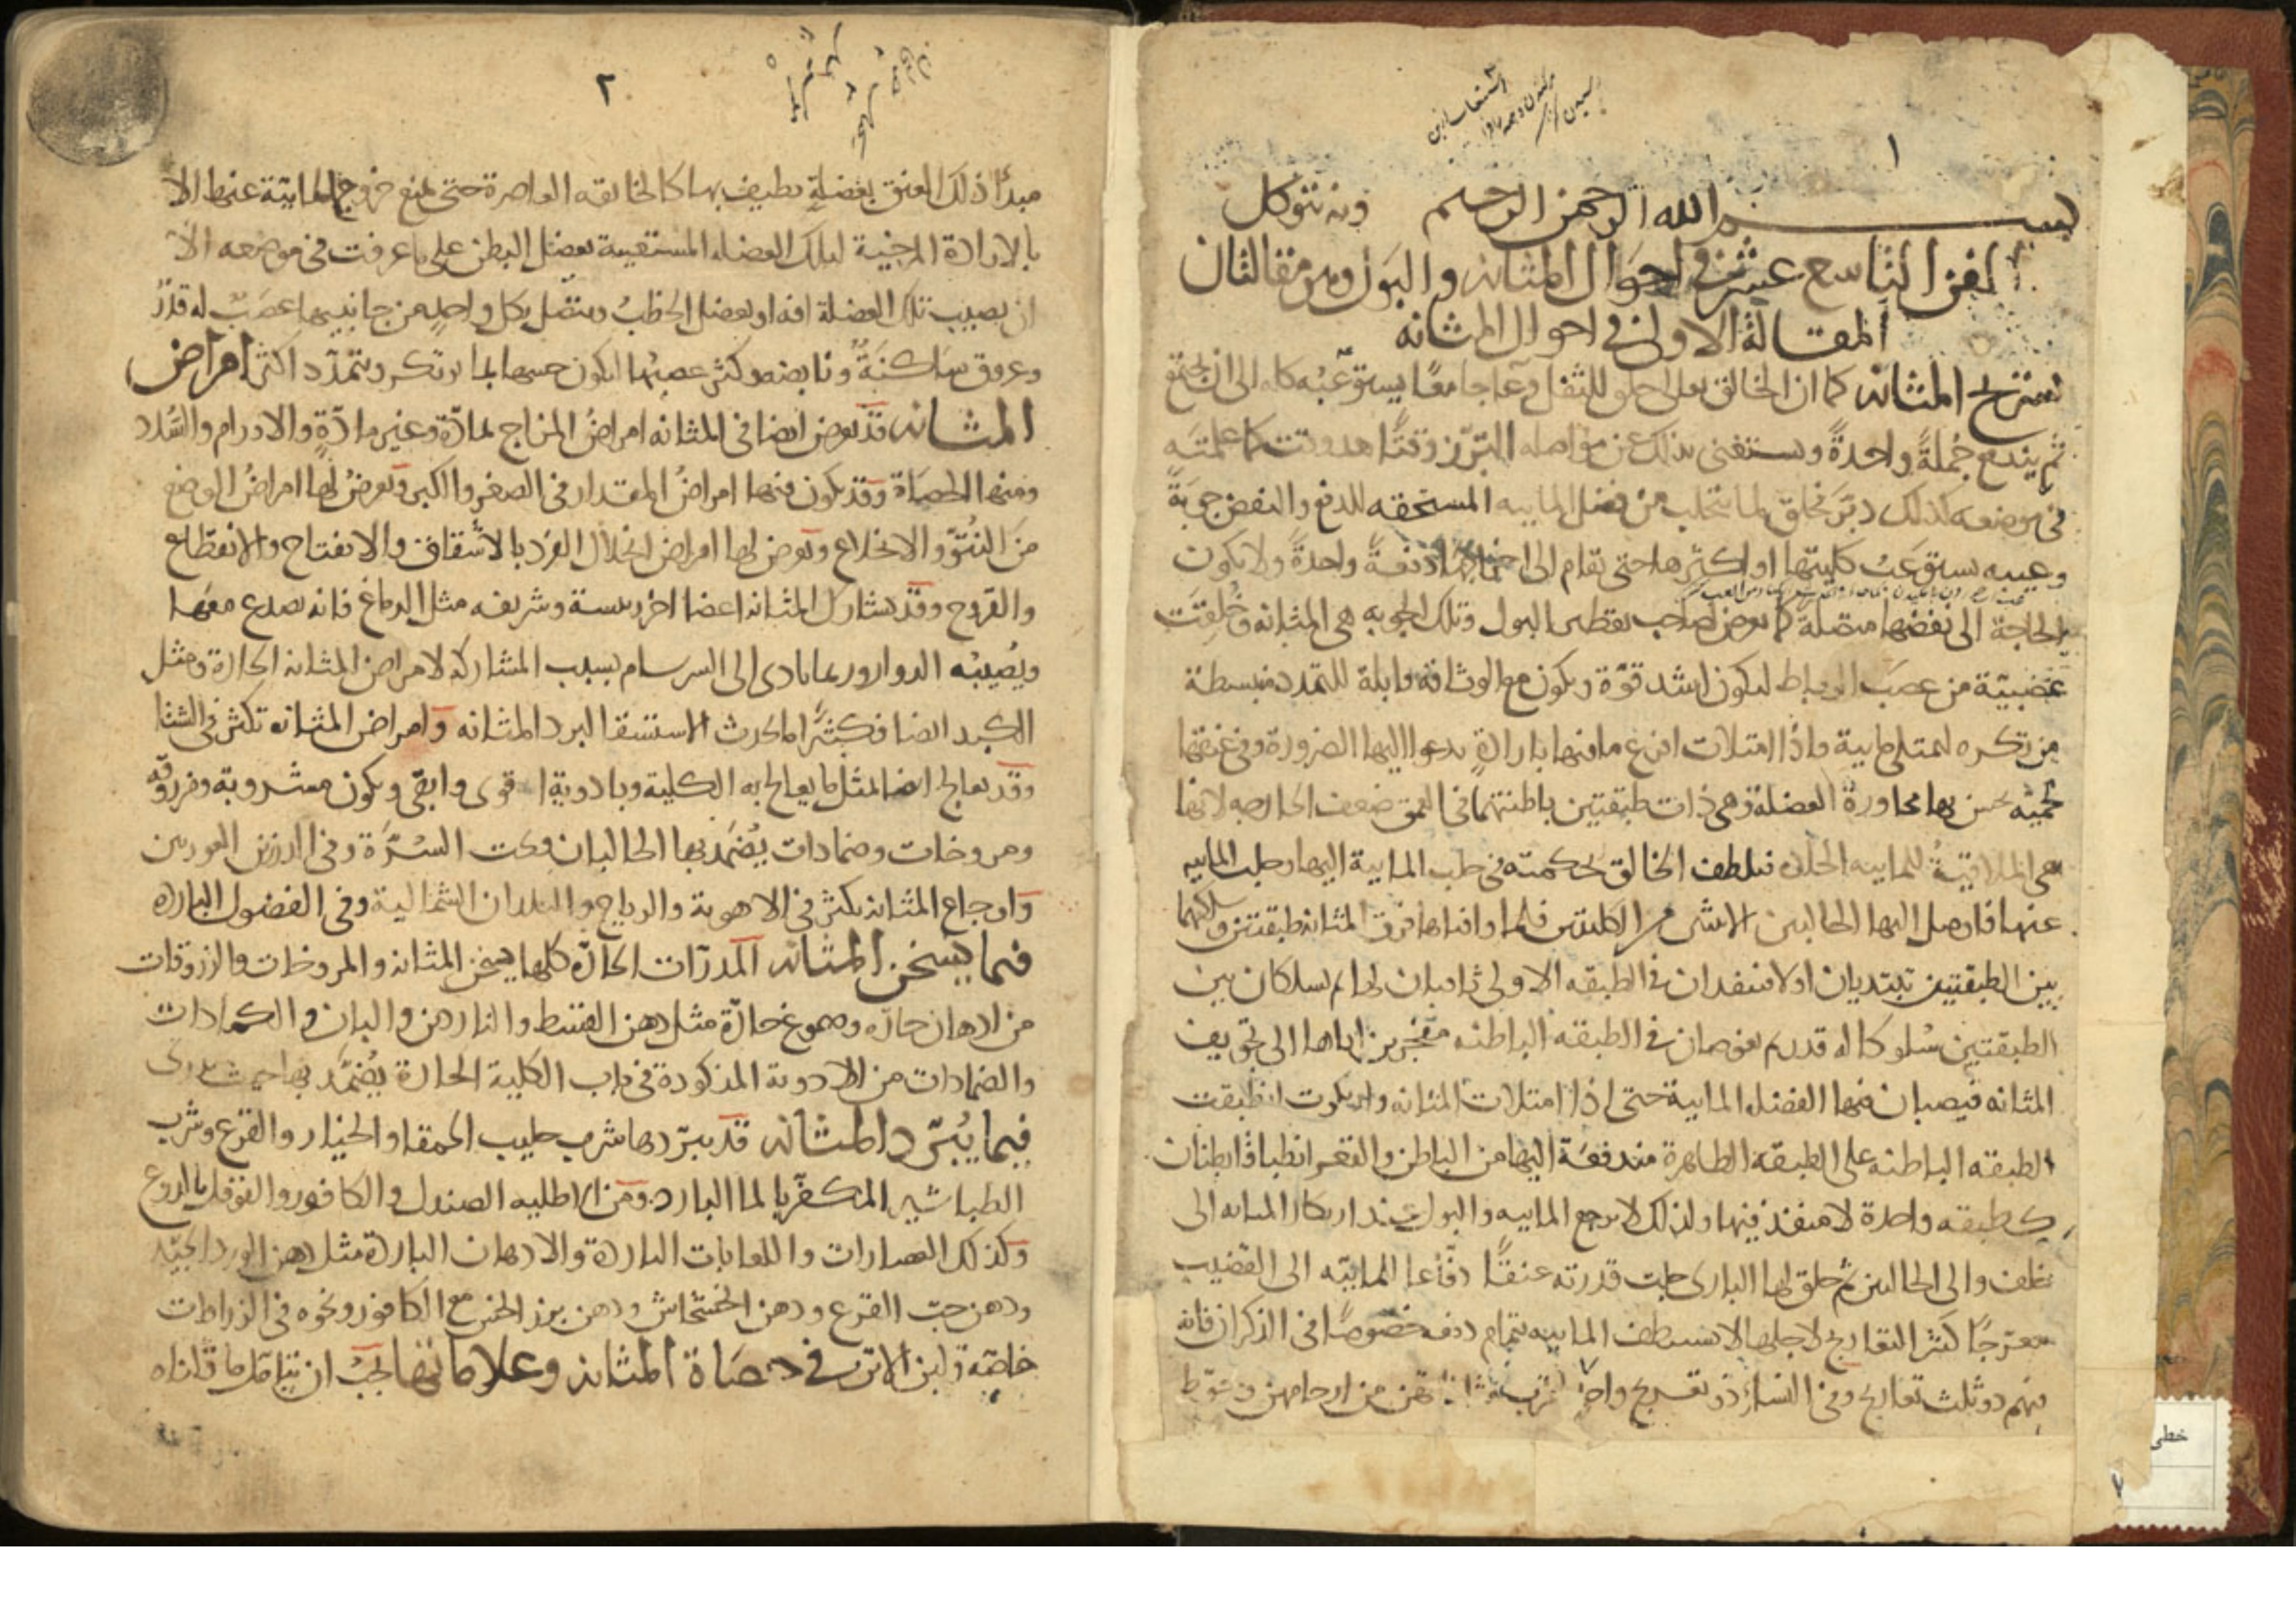 ١
بسم الله الرحمن الرحيم وبه نتوكل
الفن التاسع عشر في احوال المثانه والبول وهو مقالتان
المقالة الاولى في احوال المثانه
تشريح المثانه كما ان الخالق تعالى خلق للثفل وعاء جامعا يستوعبه كله الى ان يجتمع
ثم يندفع جُملةً واحدةً ويستغنى بذلك عن مواصله التبرّز وقتًا بعد وقت كما علمته
في موضعه كذلك دبّر فخلق لما يتحلب من فضل الماييه المستحقه للدفع والنفض جوبَةً
وعيبه يستوعب كليتها او اكثرها حتى يقام الى اخراجها دفعةً واحدةً ولا يكون
الحاجة الى نفضها متصلة كما يعرض لصاحب تقطير البول وتلك الجوبه هي المثانه وخُلِقتَ
عَصبيّة من عصَب الرباط ليكون اشد قوّة ويكون مع الوثاقه قابلة للتمدد منبسطة
مرتكزه لتمتلى مايية واذا امتلات افرغ ما فيها بارادةٍ يدعوا اليها الضرورة وفي عنقها
لحميّه يحسن بها مجاورة العضلة وهي ذات طبقتين باطنتهما في العمق ضعف الخارجه لانها
هي الملاقيةُ للماييه الحادّه فتلطف الخالق بحكمته في جلب المايية اليها وجلب الماييه
عنها فاوصل اليها الحالبين الاتيين من الكليتين فلما وافياها فرق للمثانه طبقتين وسلكهما
بين الطبقتين يبتديان اولا فينفذان في الطبقه الاولى ثاقبان لها ثم يسلكان بين
الطبقتين سُلوكا له قدر ثم يغوصان في الطبقه الباطنه مفجرين اياها الى تجويف
المثانه فيصبان فيها الفضله المايية حتى اذا امتلات المثانه وارتكزت انطبقت
الطبقه الباطنه على الطبقه الظاهرة مندفعَة اليها من الباطن والقعر انطباقا يظنان
كطبقه واحدة لا منفذ فيها ولذلك لا يرجع الماييه والبول عند ارتكاز المثانه الى
خلف والى الحالبين ثم خلق لها البارى جلت قدرته عنقًا دفّاعا للماييّه الى القضيب
معرّجًا كثير التعاريج لاجلها لا تستنظف الماييه بتمام دفعه خصوصًا في الذكران فانه
فيهم ذو ثلث تعاريج وفي النساء ذو تعريج واحد لقرب مثانتهن من ارحامهن وحوّط
٢
مبدأ ذلك العنق بعضلةٍ تطيف بها كالخانقه العاصرة حتى تمنع خروج المايية عنها الا
بالارادة المرخية لتلك العضله المستعينة بعضل البطن على ما عرفت في موضعه الا
ان يصيب تلك العضلة افه او بعضل البطن ويتصل بكل واحدٍ من جانبيها عصَبٌ له قدْرٌ
وعروق سَاكنَةٌ ونابضه وكثر عصبُها ليكون حسها بما يرتكز ويتمدّد اكثر امراض
المثانه قد يعرض ايضا في المثانه امراضُ المزاج لمادّة وغير مادّةٍ والاورام والسُّدد
ومنها الحصاة وقد يكون فيها امراضُ المقدار في الصغر والكبر ويعرضُ لها امراضُ الوضع
منَ النُتوّ والانخلاع ويعرض لها امراض انحلال الفرد بالانشقاق والانفتاح والانقطاع
والقروح وقد يشارك المثانه اعضا اخر رييسة وشريفه مثل الدماغ فانه يصدع معهَا
ويُصيبُه الدوار وربما تادى الى السرسام بسبب المشاركه لامراض المثانه الحارة ومثل
الكبد ايضا فكثيرًا ما يحدث الاستسقا لبرد المثانه وامراض المثانه تكثر في الشتا
وقد يعالج ايضا بمثل ما يعالج به الكلية وبادوية اقوى وابقى ويكون مشروبة ومزروقه
ومروخات وضمادات يُضمَّد بها الحالبان وتحت السُّرَّة وفي الدرزين العودين
واوجاع المثانه يكثر في الاهوية والرياح والبلدان الشمالية وفي الفصول البارده
فيما يسخن المثانه المدرّات الحارّه كلها يسخن المثانه والمروخات والزروقات
من ادهان حارّه وصموغ حارّة مثل دهن القسط والناردين والبان والكمادات
والضمادات من الادوية المذكورة في باب الكلية الحارة يُضمّد بها حيث يدرى
فيما يُبرّد المثانه قد يبرّدها شرب حليب الحمقا والخيار والقرع وشرب
الطباشير المكفّر بالما البارد ومن الاطليه الصندل والكافور والفوفل بالدوغ
وكذلك العصارات واللعابات الباردة والادهان الباردة مثل دهن الورد الجيّد
ودهن حبّ القرع ودهن الخشخاش ودهن بزر الخس مع الكافور ونحوه في الزراقات
خاصّه ولبن الاتن في حصَاة المثانه وعلاماتها يجبُ ان يتامّل ما قلناه
خطى